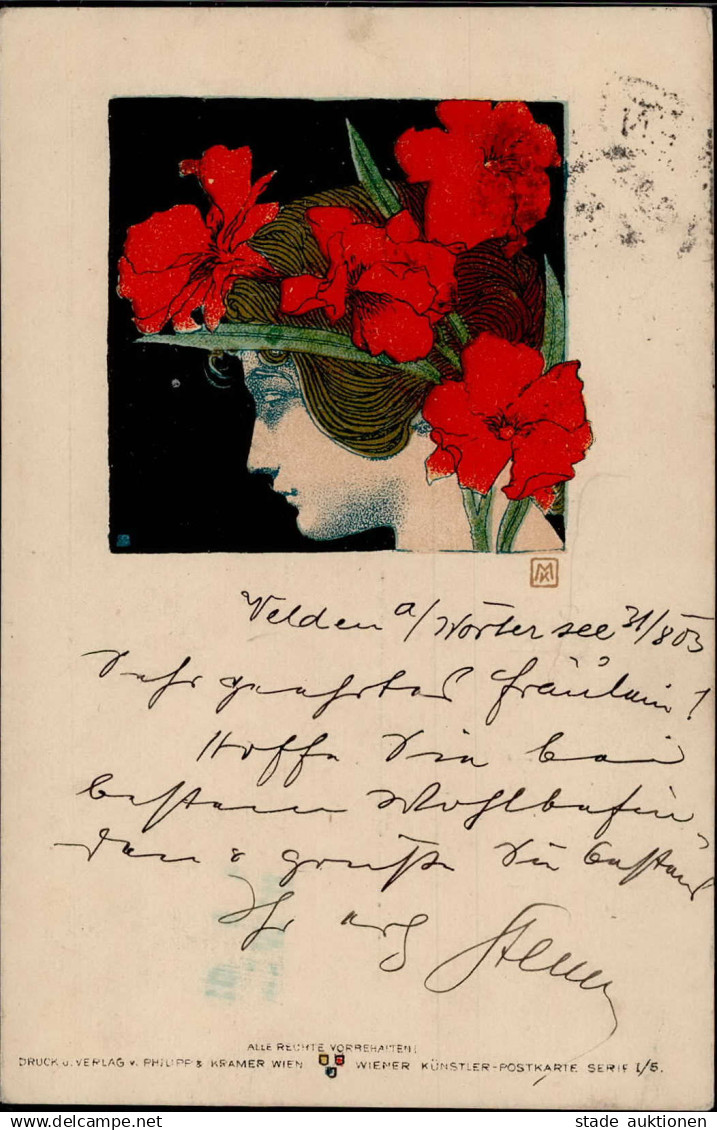 MK
Velden a/Wörter see 31/8 03
Sehr geehrtes Fräulein!
Hoffe Sie bei
bestem Wohlbefin-
den & grüße Sie bestens
Ihr erg
ALLE RECHTE VORBEHALTEN!
DRUCK U. VERLAG V. PHILIPP & KRAMER WIEN WIENER KÜNSTLER-POSTKARTE SERIE I/5.
www.delcampe.net stade auktionen